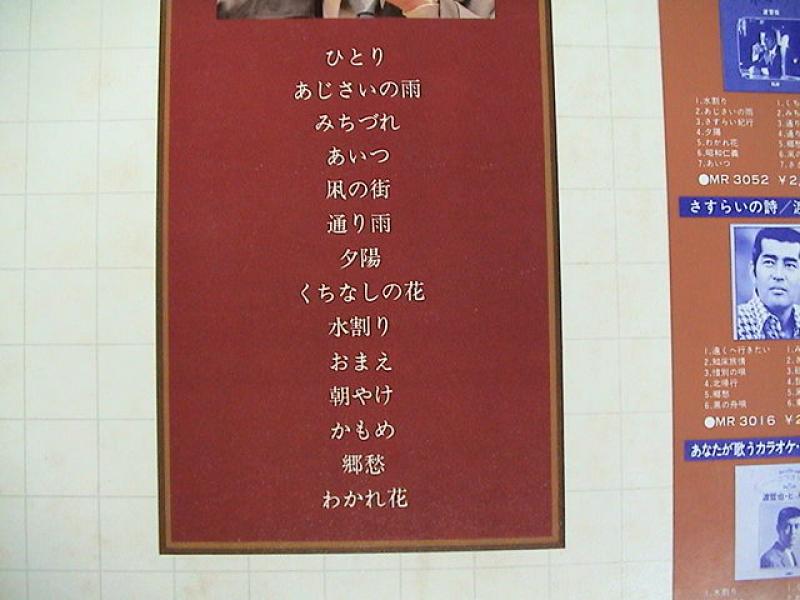 ひとり
あじさいの雨
みちづれ
あいつ
凩の街
通り雨
夕陽
くちなしの花
水割り
おまえ
朝やけ
かもめ
郷愁
わかれ花
渡哲也
1.水割り
2.あじさいの雨
3.さすらい紀行
4.夕陽
5.わかれ花
6.昭和仁義
7.あいつ
●MR 3052 ¥2,
さすらいの詩／渡
1.遠くへ行きたい
2.知床旅情
3.惜別の唄
4.北帰行
5.郷愁
6.黒の舟唄
●MR 3016 ¥2
あなたが歌うカラオケ・
渡哲也・ヒ
1.水割り